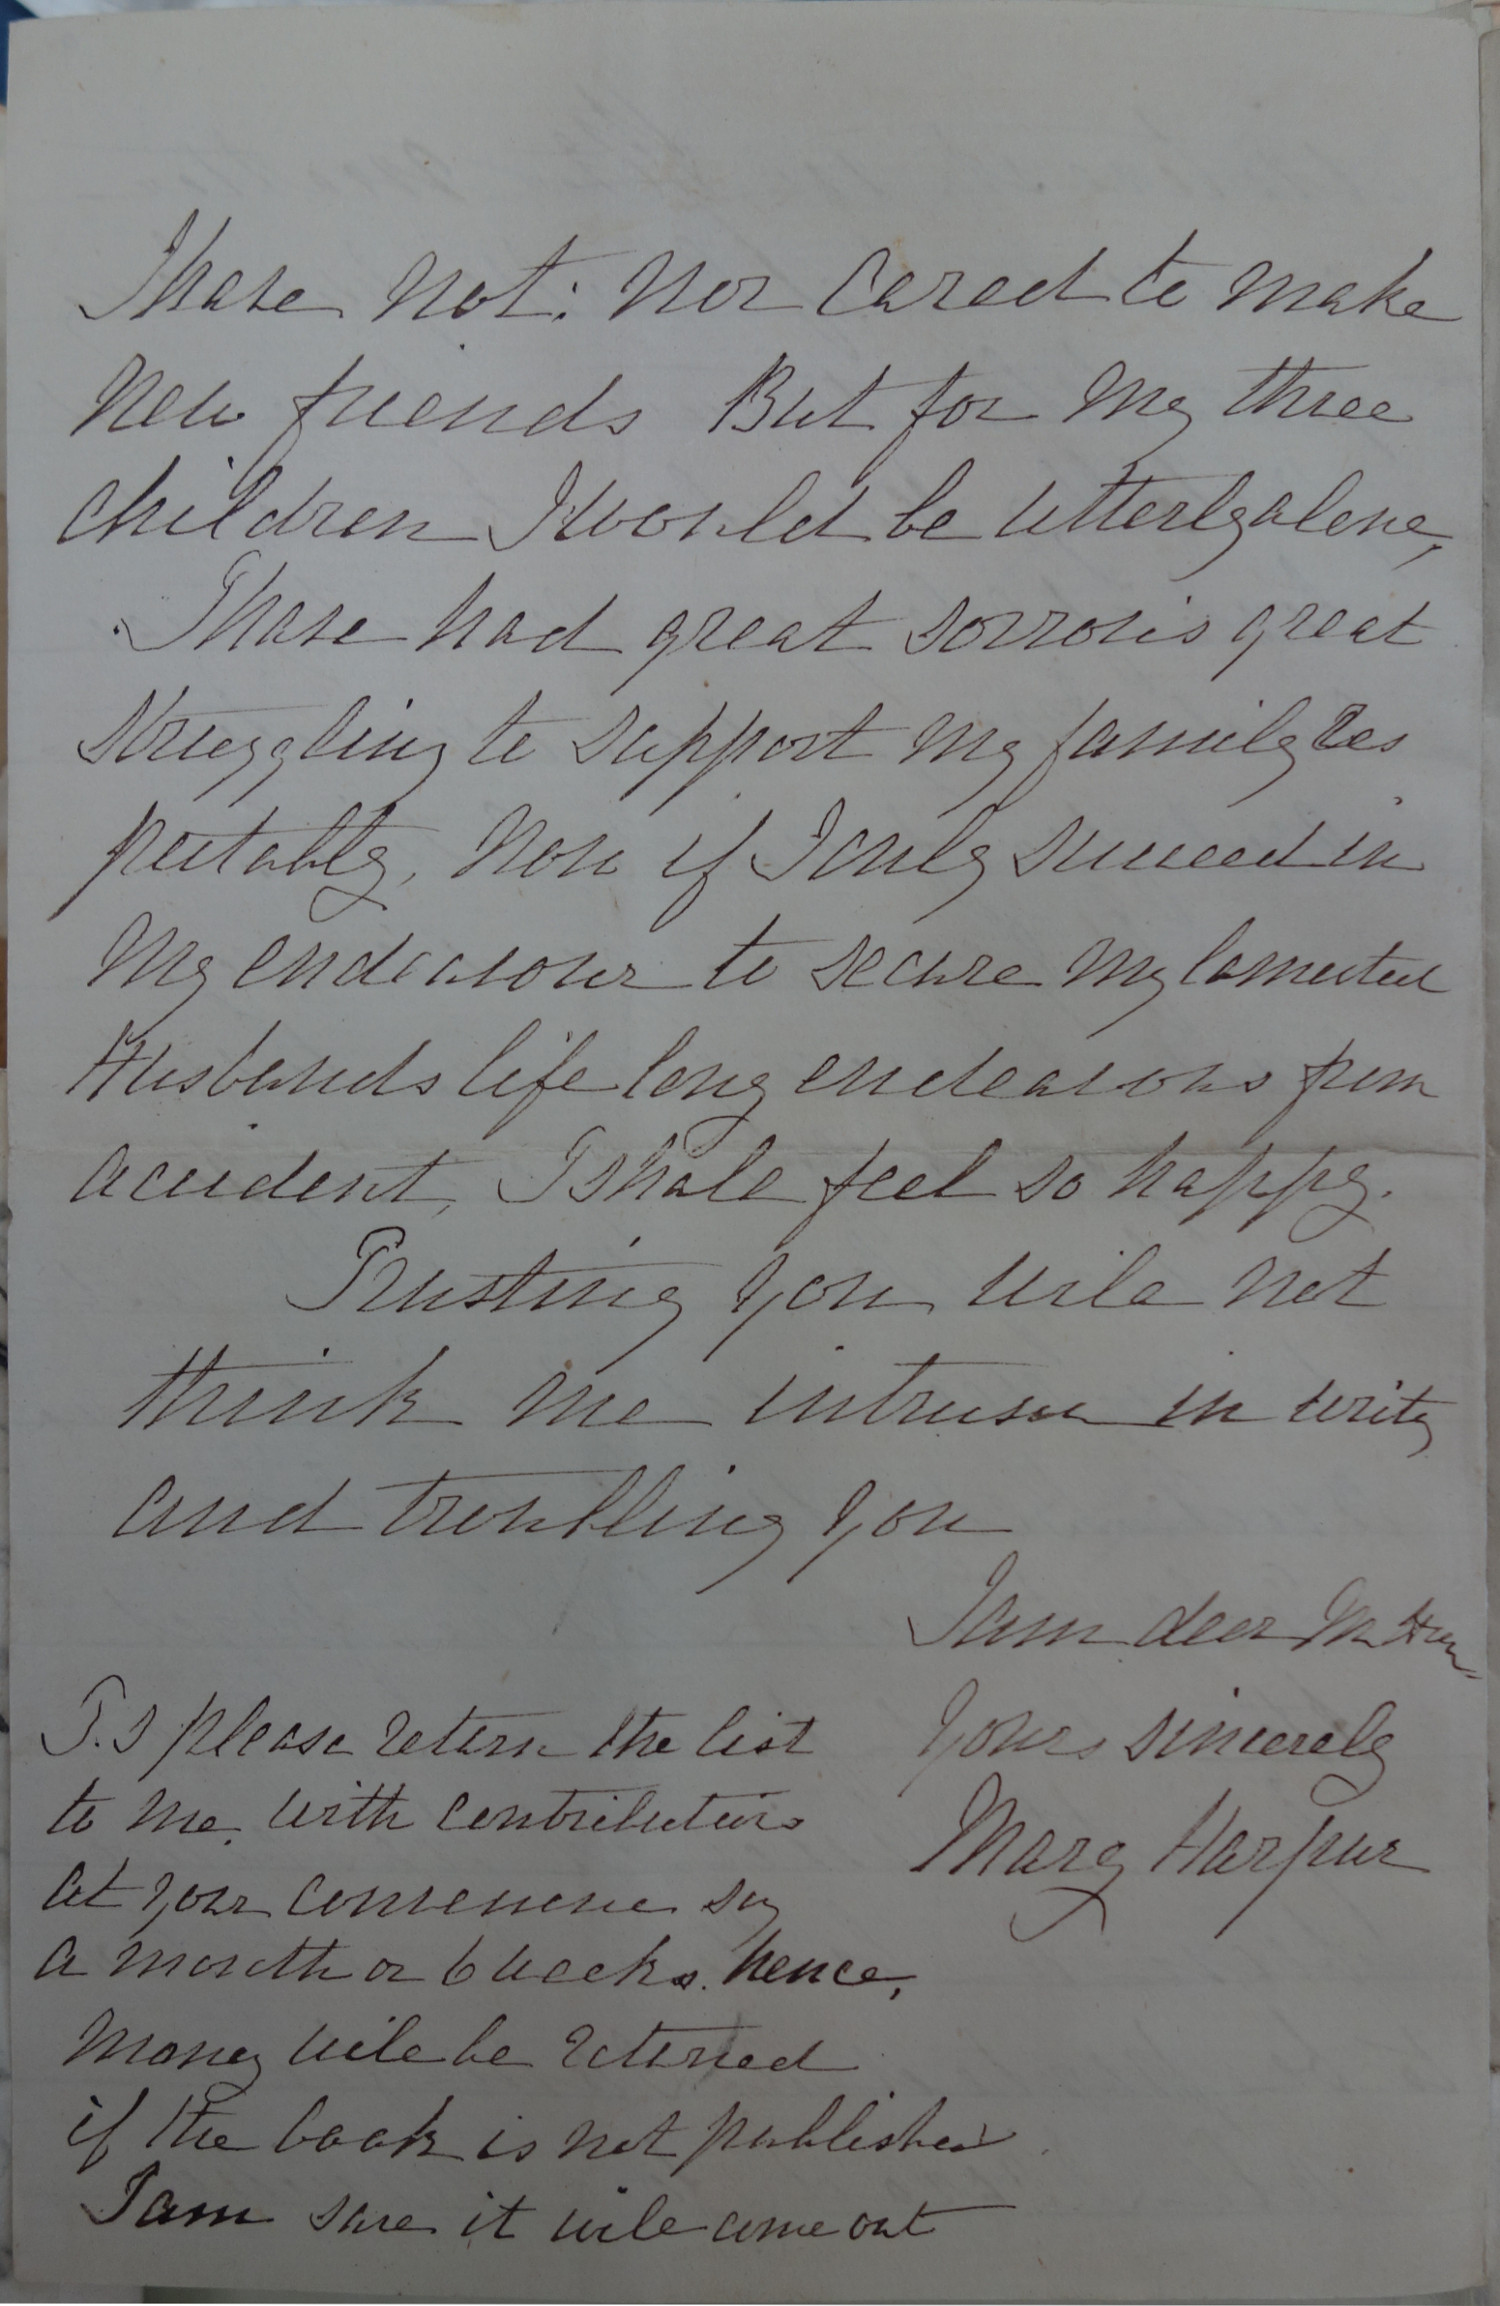 I have not: nor cared to make
new friends But for my three
children I would be utterly alone,
I have had great sorrows great
struggling to support my family res
pectably, Now if I only succeed in
my endeavour to secure my lamented
Husbands life long endeavors from
accident, I shale feel so happy.
Trusting you wile not
think me intrusive in writg
and troubling you
I am dear Mr
Yours sincerely
Mary Harpur
P.S please return the list
to me. with contributions
at your convenience say
a month or 6 weeks. hence,
Money wile be returned
if the book is not published
I am sure it wile come out